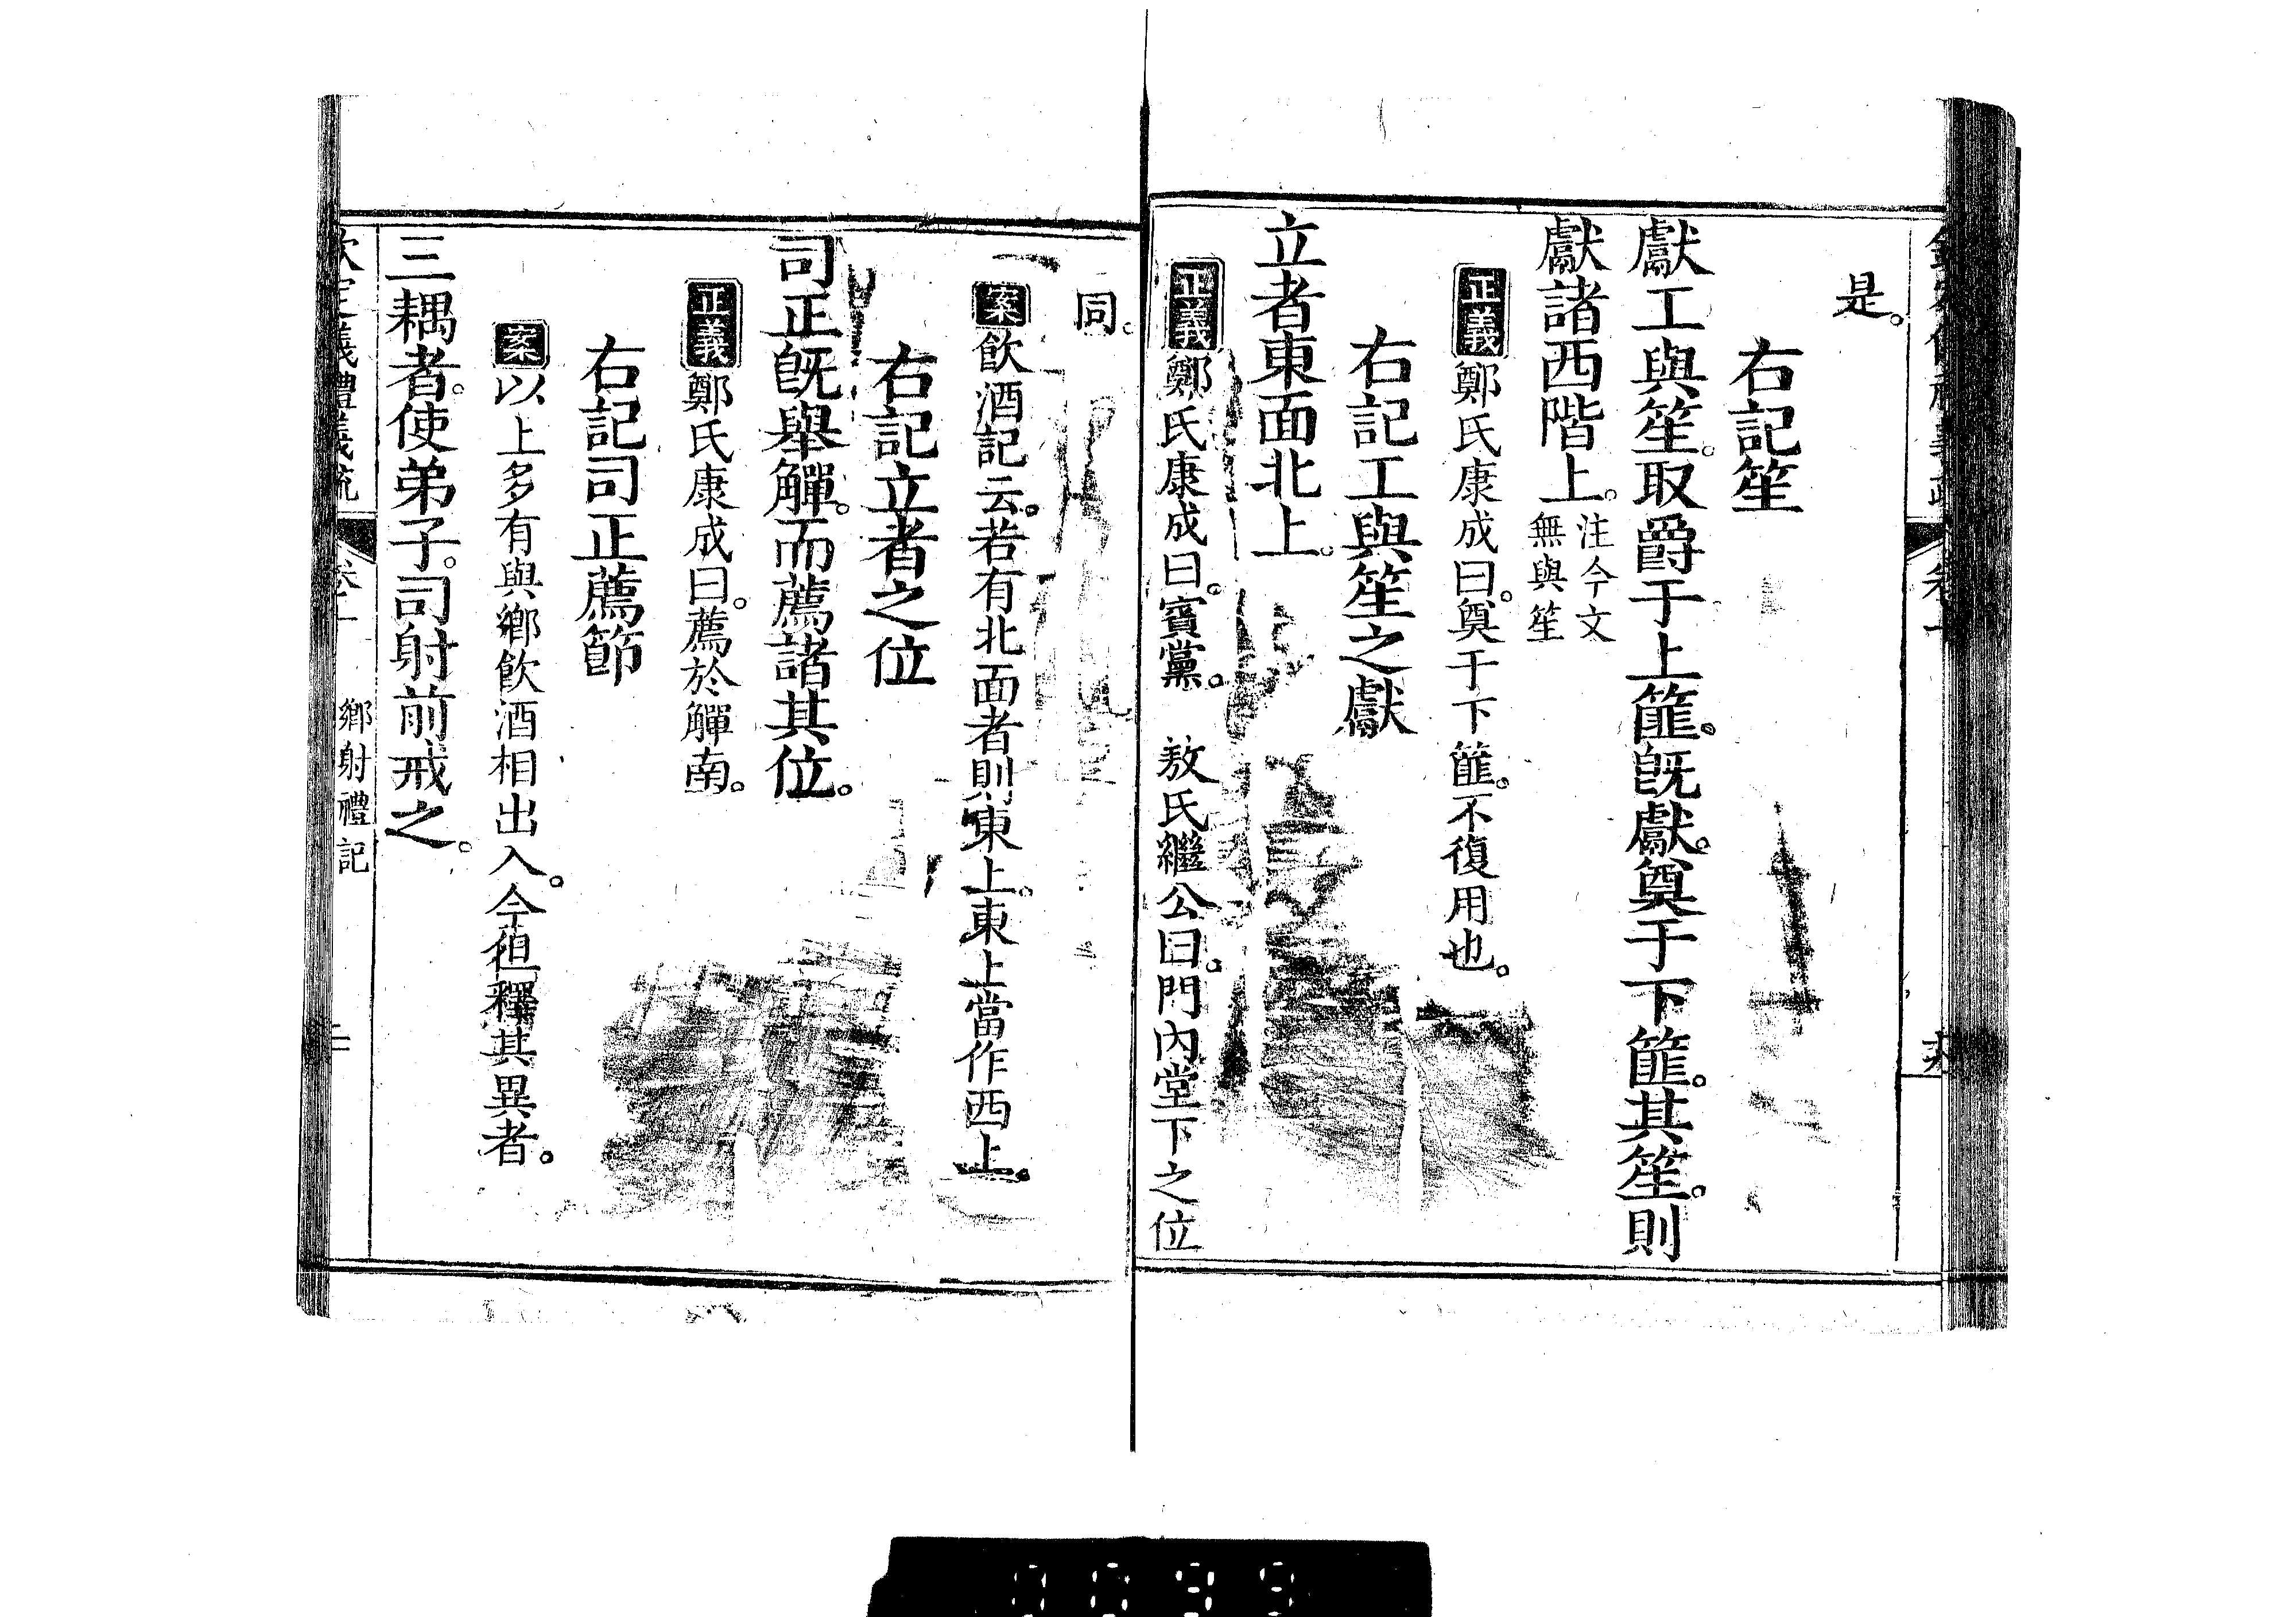 是。
右記笙
獻工與笙。取爵于上篚。旣獻。奠于下篚。其笙。則
獻諸西階上。注今文無與笙
正義鄭氏康成曰。奠于下篚。不復用也。
右記工與笙之獻
立者東面北上。
正義鄭氏康成曰。賓黨。 敖氏繼公曰。門內堂下之位
同。
案飲酒記云。若有北面者則東上。東上當作西上。
右記立者之位
司正旣舉觶。而薦諸其位。
正義鄭氏康成曰。薦於觶南。
右記司正薦節
案以上多有與鄉飲酒相出入。今但釋其異者。
三耦者。使弟子。司射前戒之。
欽定義禮義疏 鄉射禮記